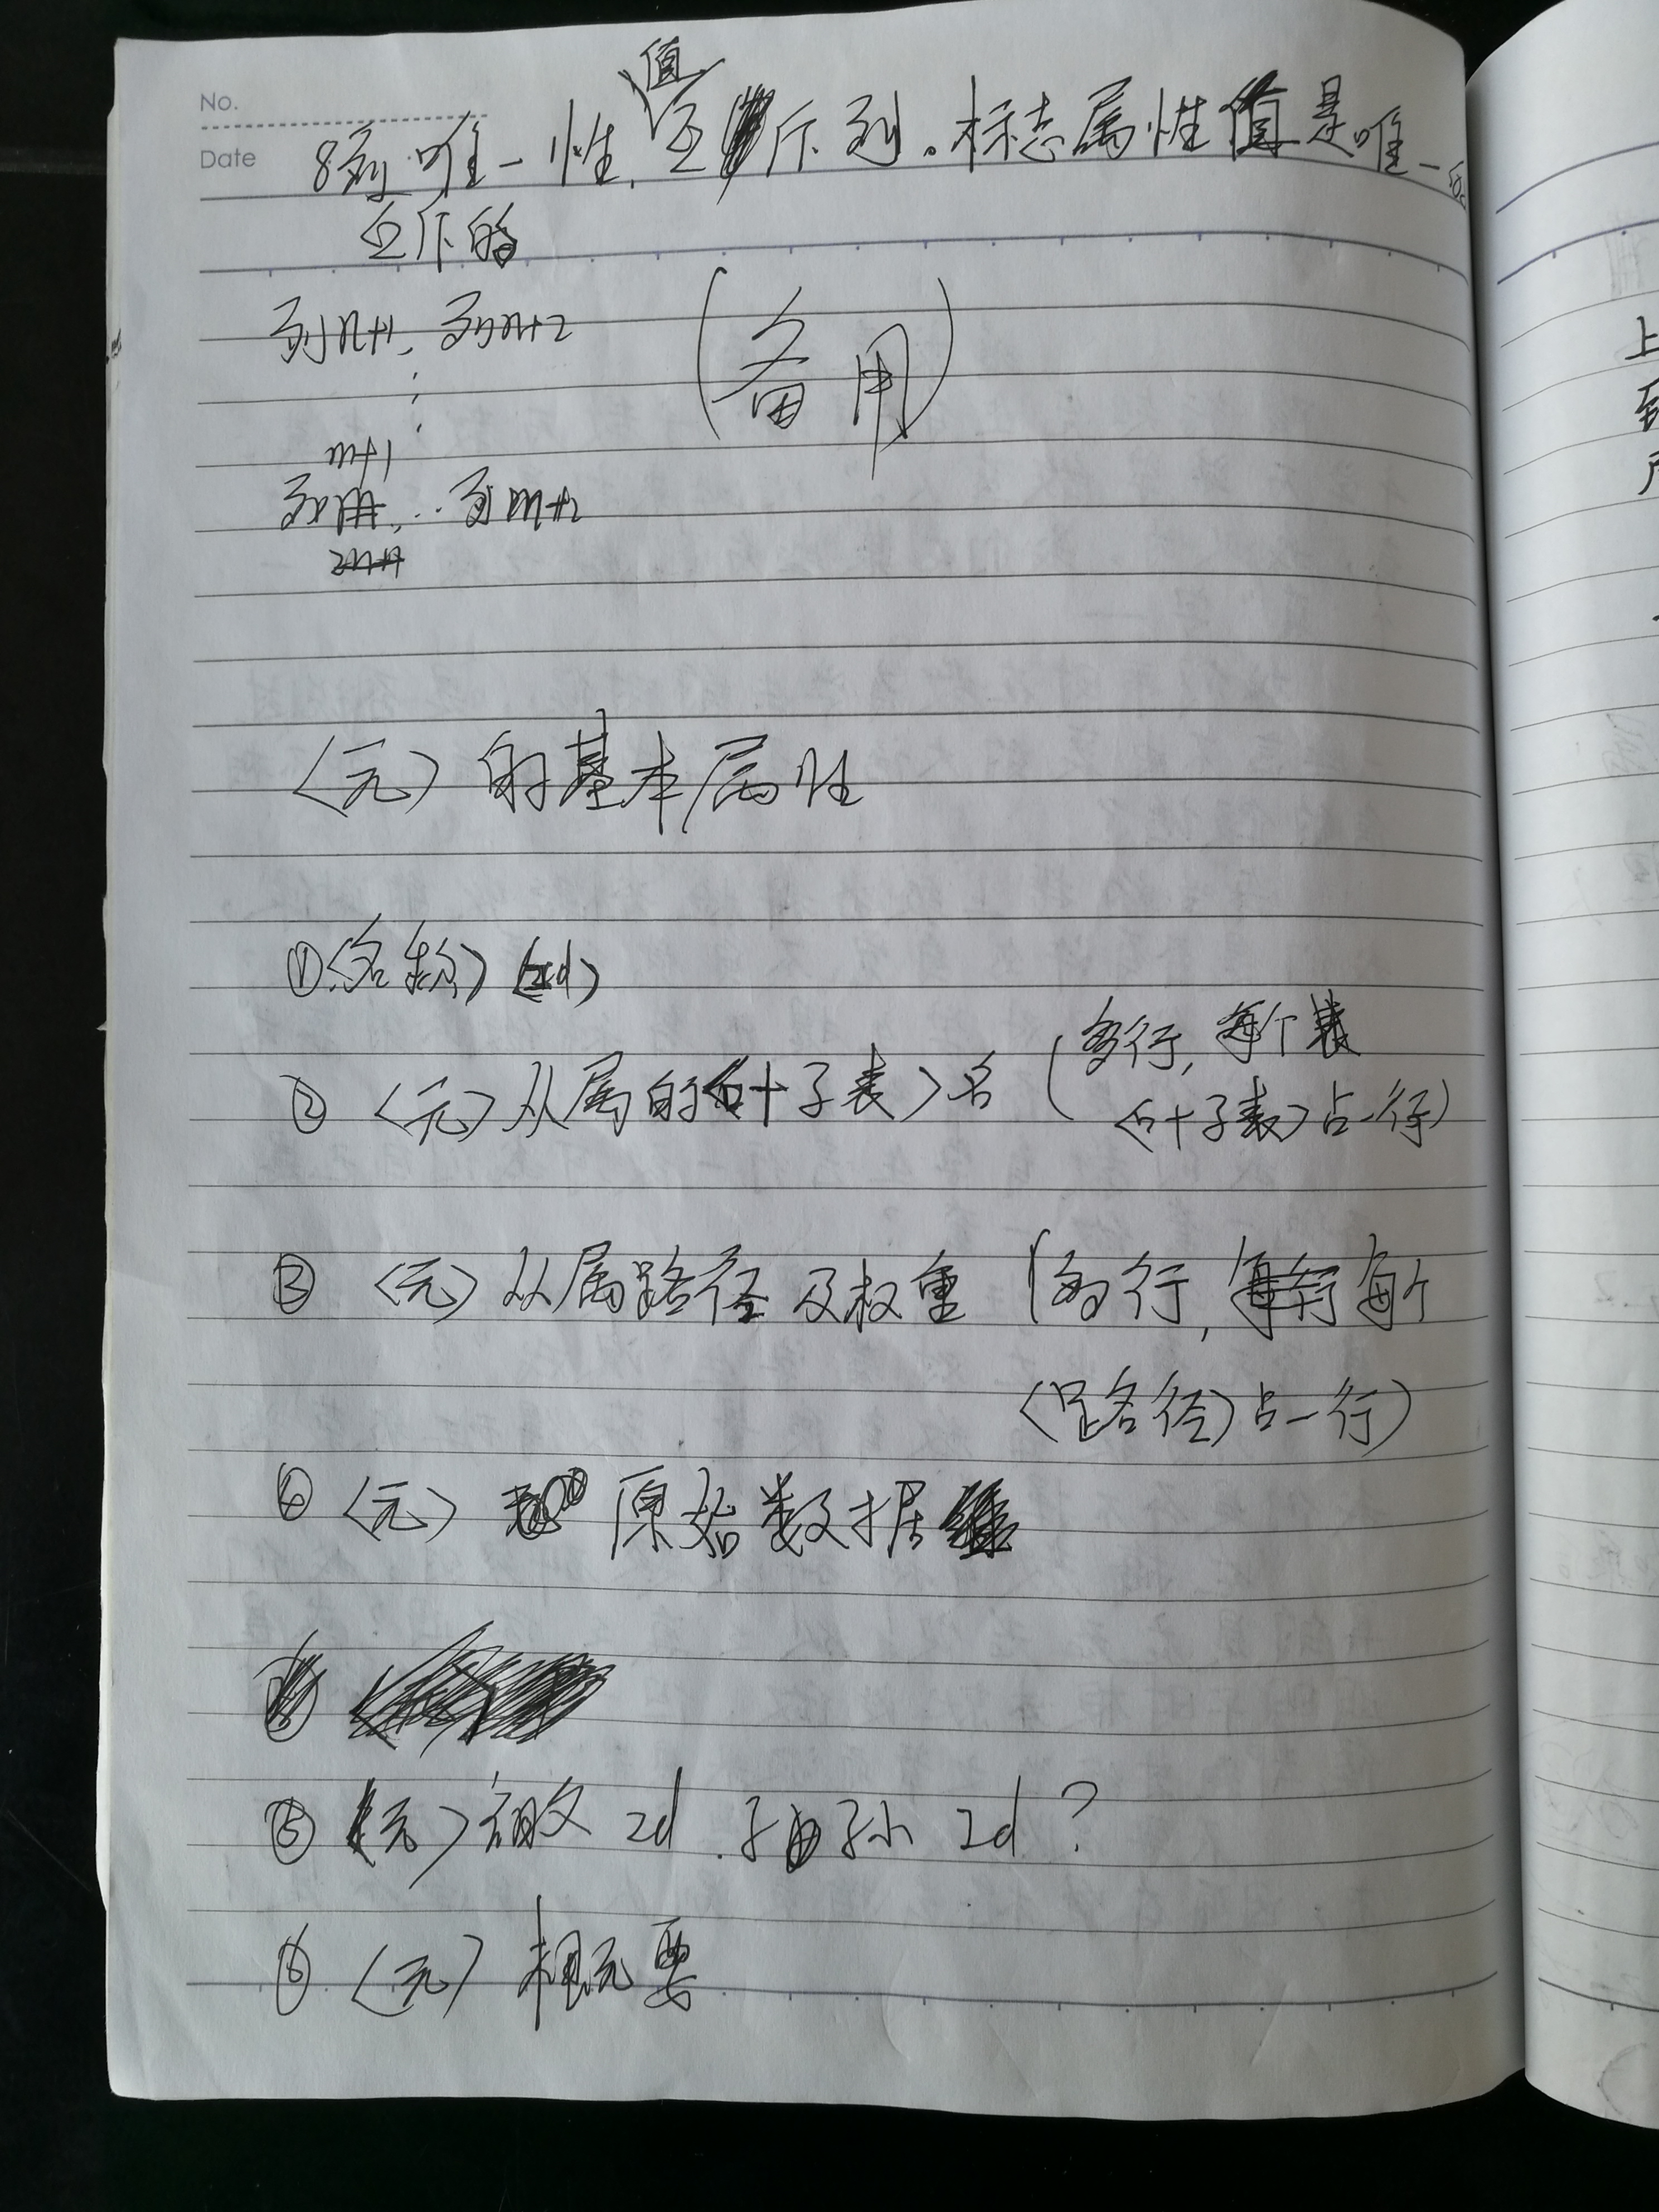 No.
Date
8列唯一性值互斥列。标志属性值是唯一的
互斥的
列n+1, 列n+2
(备用)
m+1
列 .. 列m+2
〈元〉的基本属性
①〈名称〉(id)
② 〈元〉从属的〈叶子表〉名 (多行, 每个
〈叶子表〉占一行)
③ 〈元〉从属路径及权重 (多行, 每个
〈路径〉占一行)
④ 〈元〉 原始数据
⑤ 〈元〉 父 id 子孙 id ?
⑥ 〈元〉 概要